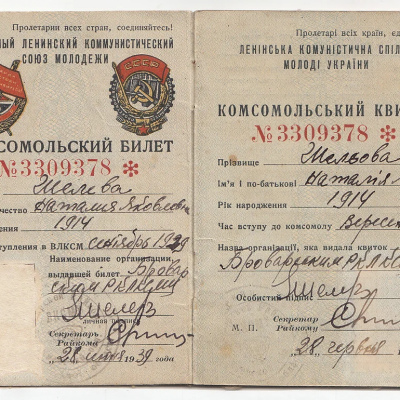 Пролетарии всех стран, соединяйтесь!
НЫЙ ЛЕНИНСКИЙ КОММУНИСТИЧЕСКИЙ
СОЮЗ МОЛОДЕЖИ
СОМОЛЬСКИЙ БИЛЕТ
№3309378 *
Шелева
чество Наталия Яковлевна
ения 1914
ступления в ВЛКСМ сентябрь 1929
Наименование организации,
выдавшей билет Бровар
ским РКЛКСМУ
личная подпись
Секретарь
Райкома
„28 июня 1939 года
Пролетарі всіх країн, єд
ЛЕНІНСЬКА КОМУНІСТИЧНА СПІЛ
МОЛОДІ УКРАЇНИ
КОМСОМОЛЬСЬКИЙ КВИ
№3309378 *
Прізвище Шельова
Ім'я і по-батькові Наталія
Рік народження 1914
Час вступу до комсомолу Вересен
Назва організації, яка видала квиток
Броварським РКЛКС
Особистий підпис
М. П. Секретар
Райкому
„28" червня